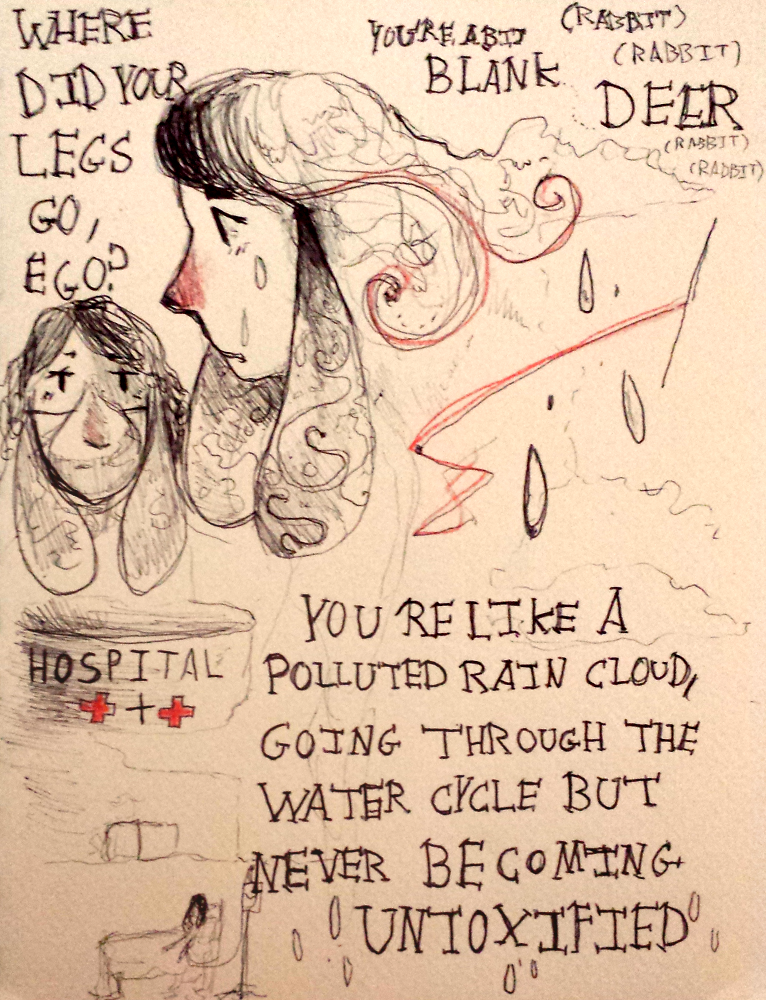 WHERE
DID YOUR
LEGS
GO,
EGO?
YOU'RE A BIT
BLANK
(RABBIT)
(RABBIT)
DEER
(RABBIT)
(RABBIT)
HOSPITAL
YOU'RE LIKE A
POLLUTED RAIN CLOUD,
GOING THROUGH THE
WATER CYCLE BUT
NEVER BECOMING
UNTOXIFIED